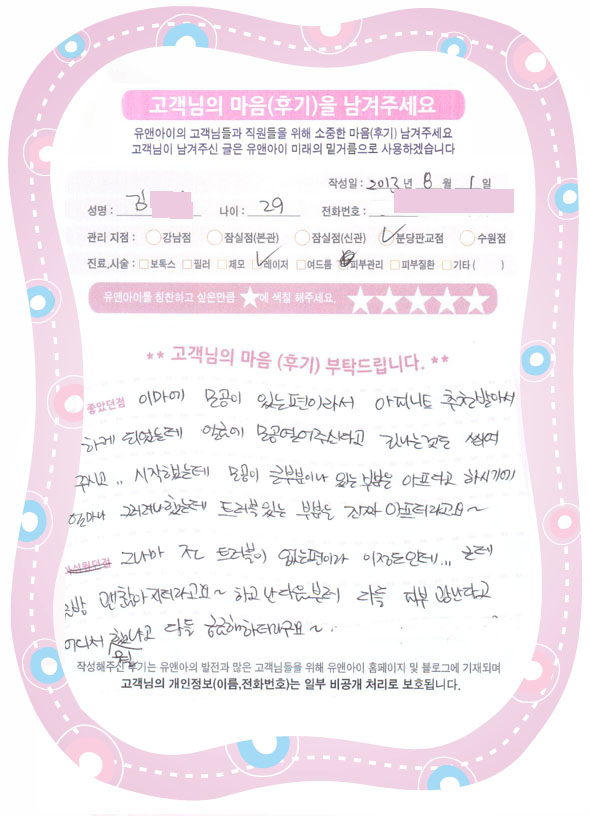 고객님의 마음(후기)을 남겨주세요
유앤아이의 고객님들과 직원들을 위해 소중한 마음(후기) 남겨주세요
고객님이 남겨주신 글은 유앤아이 미래의 밑거름으로 사용하겠습니다
작성일 : 2013 년 8 월 1 일
성명 : 김 나이 : 29 전화번호 :
관리 지점 : 강남점 잠실점(본관) 잠실점(신관) 분당판교점 수원점
진료,시술 : 보톡스 필러 제모 레이저 여드름 피부관리 피부질환 기타 ( )
유앤아이를 칭찬하고 싶은만큼 ★에 색칠 해주세요.
** 고객님의 마음 (후기) 부탁드립니다. **
좋았던점 이마에 모공이 있는편이라서 아피니트 추천받아서
하게 되었는데 모공열어주신다고 바르고
주시고.. 시작했는데 모공이 큰부분이나 있는 부분은 아프다고 하시기에
얼마나 그러려나했는데 트러블있는 부분은 진짜 아프더라고요~
그나마 전 트러블이 없는편이라 이정도인데... 근데
금방 괜찮아지더라고요~ 하고 난 다음부터 다들 피부 광난다고
어디서 했냐고 다들 궁금해하더라구요~
뭘
작성해주신 후기는 유앤아의 발전과 많은 고객님들을 위해 유앤아이 홈페이지 및 블로그에 기재되며
고객님의 개인정보(이름,전화번호)는 일부 비공개 처리로 보호됩니다.